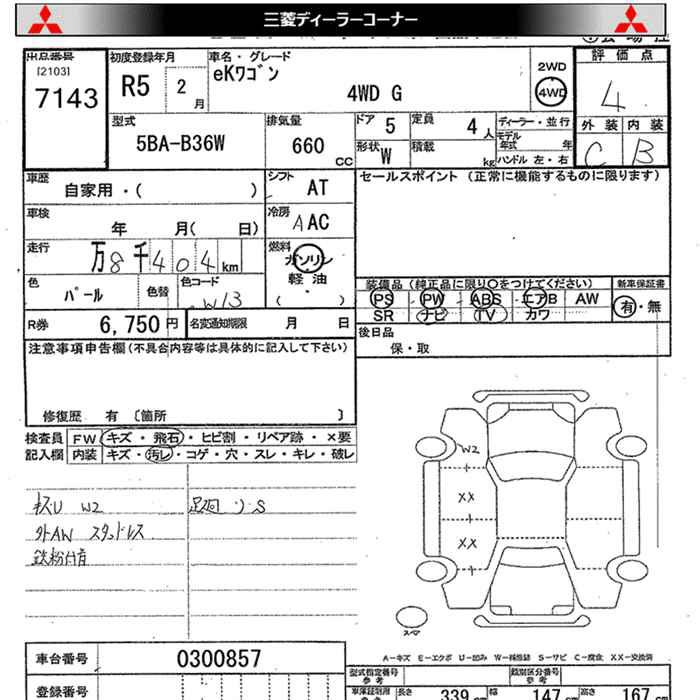 三菱ディーラーコーナー
出品番号
[2103]
7143
初度登録年月
R5 2 月
車名・グレード
eKワゴン
4WD G
2WD
4WD
評価点
4
外装 内装
C B
型式
5BA-B36W
排気量
660 cc
ドア 5
定員 4人
形状 W
積載 kg
ディーラー・並行
モデル年式 年
ハンドル 左・右
車歴
自家用・( )
シフト
AT
車検
年 月( 日)
冷房
AAC
走行
万8千404km
燃料
ガソリン
軽油
( ・ )
色
パール
色替
色コード
W13
R券 6,750円
名変通知期限 月 日
セールスポイント (正常に機能するものに限ります)
装備品 (純正品に限り○をつけてください)
PS PW ABS エアB AW
SR ナビ TV カワ
新車保証書
有・無
後日品
保・取
注意事項申告欄(不具合内容等は具体的に記入して下さい)
修復歴 有 〔箇所 〕
検査員 FW キズ・飛石・ヒビ割・リペア跡・×要
記入欄 内装 キズ・汚レ・コゲ・穴・スレ・キレ・破レ
キズU W2
足廻り・S
外AW スタッドレス
鉄粉付着
W2
XX
XX
スペア
A-キズ E-エクボ U-凹み W-補修跡 S-サビ C-腐食 XX-交換済
車台番号 0300857
登録番号
型式指定番号 参考
類別区分番号 参考
長さ 339 cm 幅 147 cm 高さ 167 cm